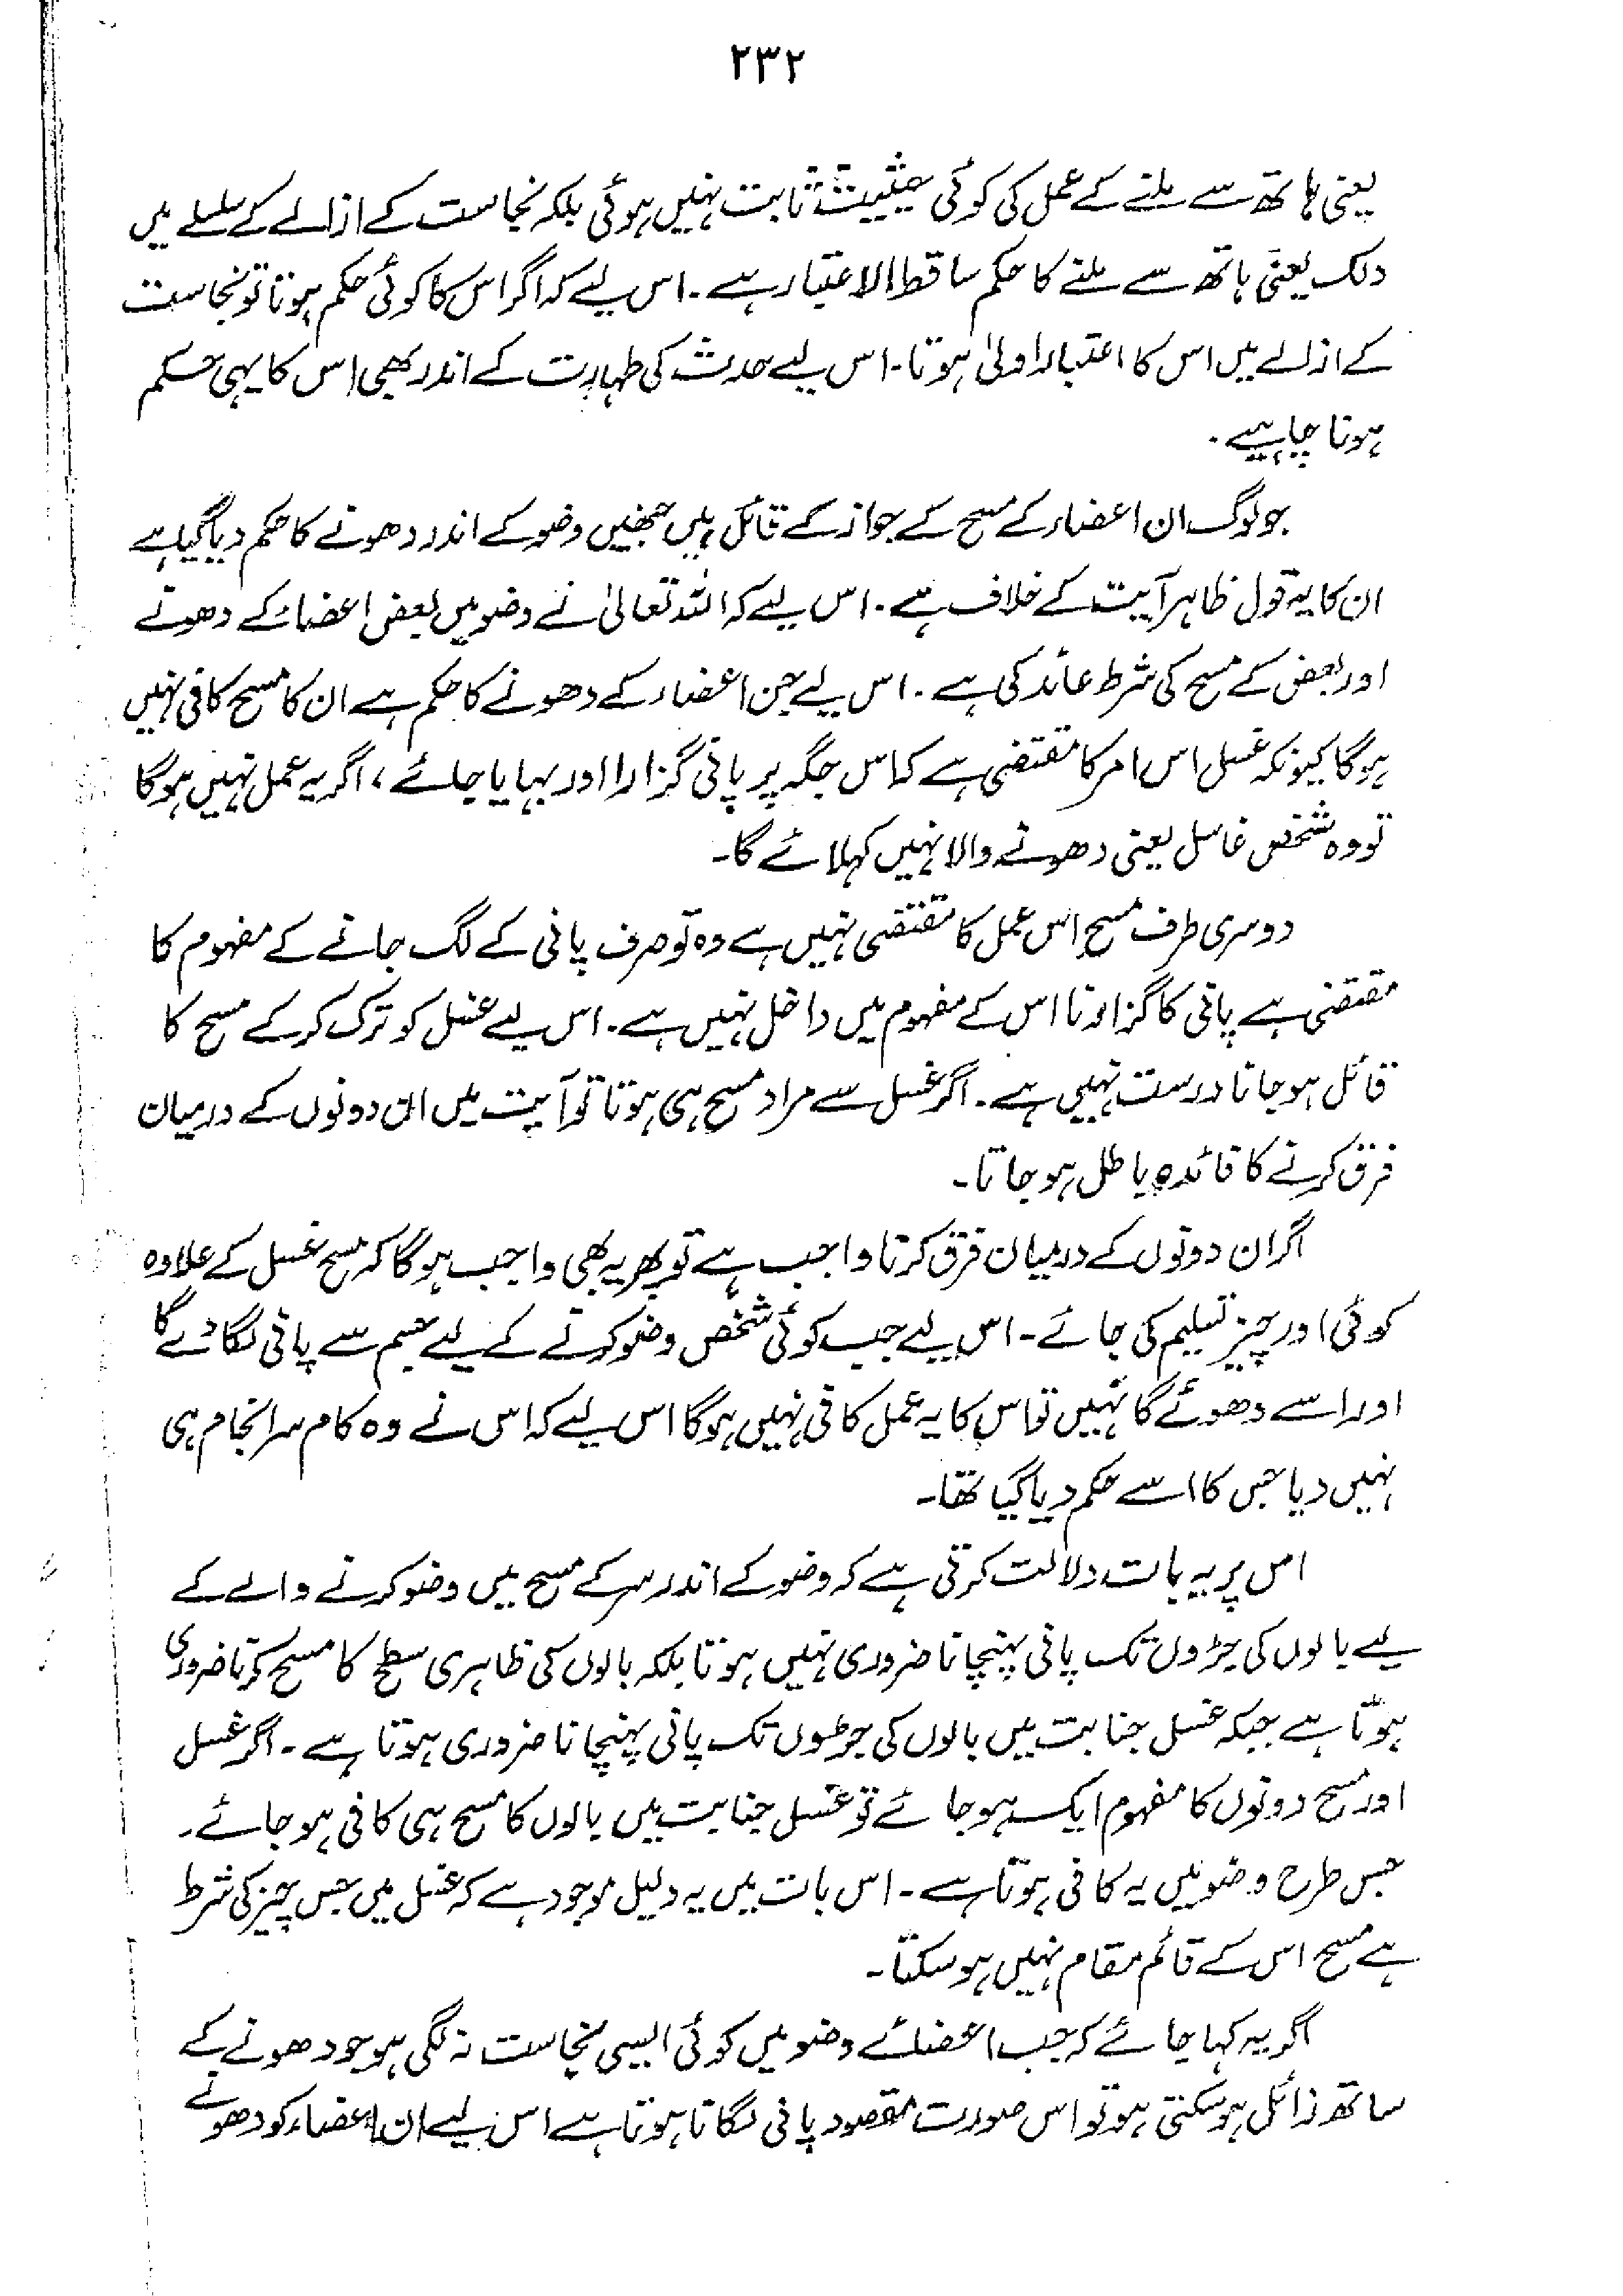 ۲۳۲
یعنی ہاتھ سے ملنے کے عمل کی کوئی حیثیت ثابت نہیں ہوئی بلکہ نجاست کے ازالے کے سلسلے میں
دلک یعنی ہاتھ سے ملنے کا حکم ساقط الاعتبار ہے۔ اس لیے کہ اگر اس کا کوئی حکم ہوتا تو نجاست
کے ازالے میں اس کا اعتبار اولیٰ ہوتا۔ اس لیے حدث کی طہارت کے اندر بھی اس کا یہی حکم
ہونا چاہیے۔
جو لوگ ان اعضاء کے مسح کے جواز کے قائل ہیں جنھیں وضو کے اندر دھونے کا حکم دیا گیا ہے
ان کا یہ قول ظاہر آیت کے خلاف ہے۔ اس لیے کہ اللہ تعالیٰ نے وضو میں بعض اعضاء کے دھونے
اور بعض کے مسح کی شرط عائد کی ہے۔ اس لیے جن اعضاء کے دھونے کا حکم ہے ان کا مسح کافی نہیں
ہوگا کیونکہ غسل اس امر کا مقتضی ہے کہ اس جگہ پر پانی گزارا اور بہایا جائے، اگر یہ عمل نہیں ہوگا
تو وہ شخص غاسل یعنی دھونے والا نہیں کہلائے گا۔
دوسری طرف مسح اس عمل کا مقتضی نہیں ہے وہ تو صرف پانی کے لگ جانے کے مفہوم کا
مقتضی ہے پانی کا گزارنا اس کے مفہوم میں داخل نہیں ہے۔ اس لیے غسل کو ترک کر کے مسح کا
قائل ہو جانا درست نہیں ہے۔ اگر غسل سے مراد مسح ہی ہوتا تو آیت میں ان دونوں کے درمیان
فرق کرنے کا فائدہ باطل ہو جاتا۔
اگر ان دونوں کے درمیان فرق کرنا واجب ہے تو پھر یہ بھی واجب ہوگا کہ مسح غسل کے علاوہ
کوئی اور چیز تسلیم کی جائے۔ اس لیے جب کوئی شخص وضو کرنے کے لیے جسم سے پانی لگا دے گا
اور اسے دھوئے گا نہیں تو اس کا یہ عمل کافی نہیں ہوگا اس لیے کہ اس نے وہ کام سرانجام ہی
نہیں دیا جس کا اسے حکم دیا گیا تھا۔
اس پر یہ بات دلالت کرتی ہے کہ وضو کے اندر سر کے مسح میں وضو کرنے والے کے
لیے بالوں کی جڑوں تک پانی پہنچانا ضروری نہیں ہوتا بلکہ بالوں کی ظاہری سطح کا مسح کرنا ضروری
ہوتا ہے جبکہ غسل جنابت میں بالوں کی جڑوں تک پانی پہنچانا ضروری ہوتا ہے۔ اگر غسل
اور مسح دونوں کا مفہوم ایک ہو جائے تو غسل جنابت میں بالوں کا مسح ہی کافی ہو جائے۔
جس طرح وضو میں یہ کافی ہوتا ہے۔ اس بات میں یہ دلیل موجود ہے کہ غسل میں جس چیز کی شرط
ہے مسح اس کے قائم مقام نہیں ہو سکتا۔
اگر یہ کہا جائے کہ جب اعضائے وضو میں کوئی ایسی نجاست نہ لگی ہو جو دھونے کے
ساتھ زائل ہو سکتی ہو تو اس صورت مقصود پانی لگانا ہوتا ہے اس لیے ان اعضاء کو دھونے